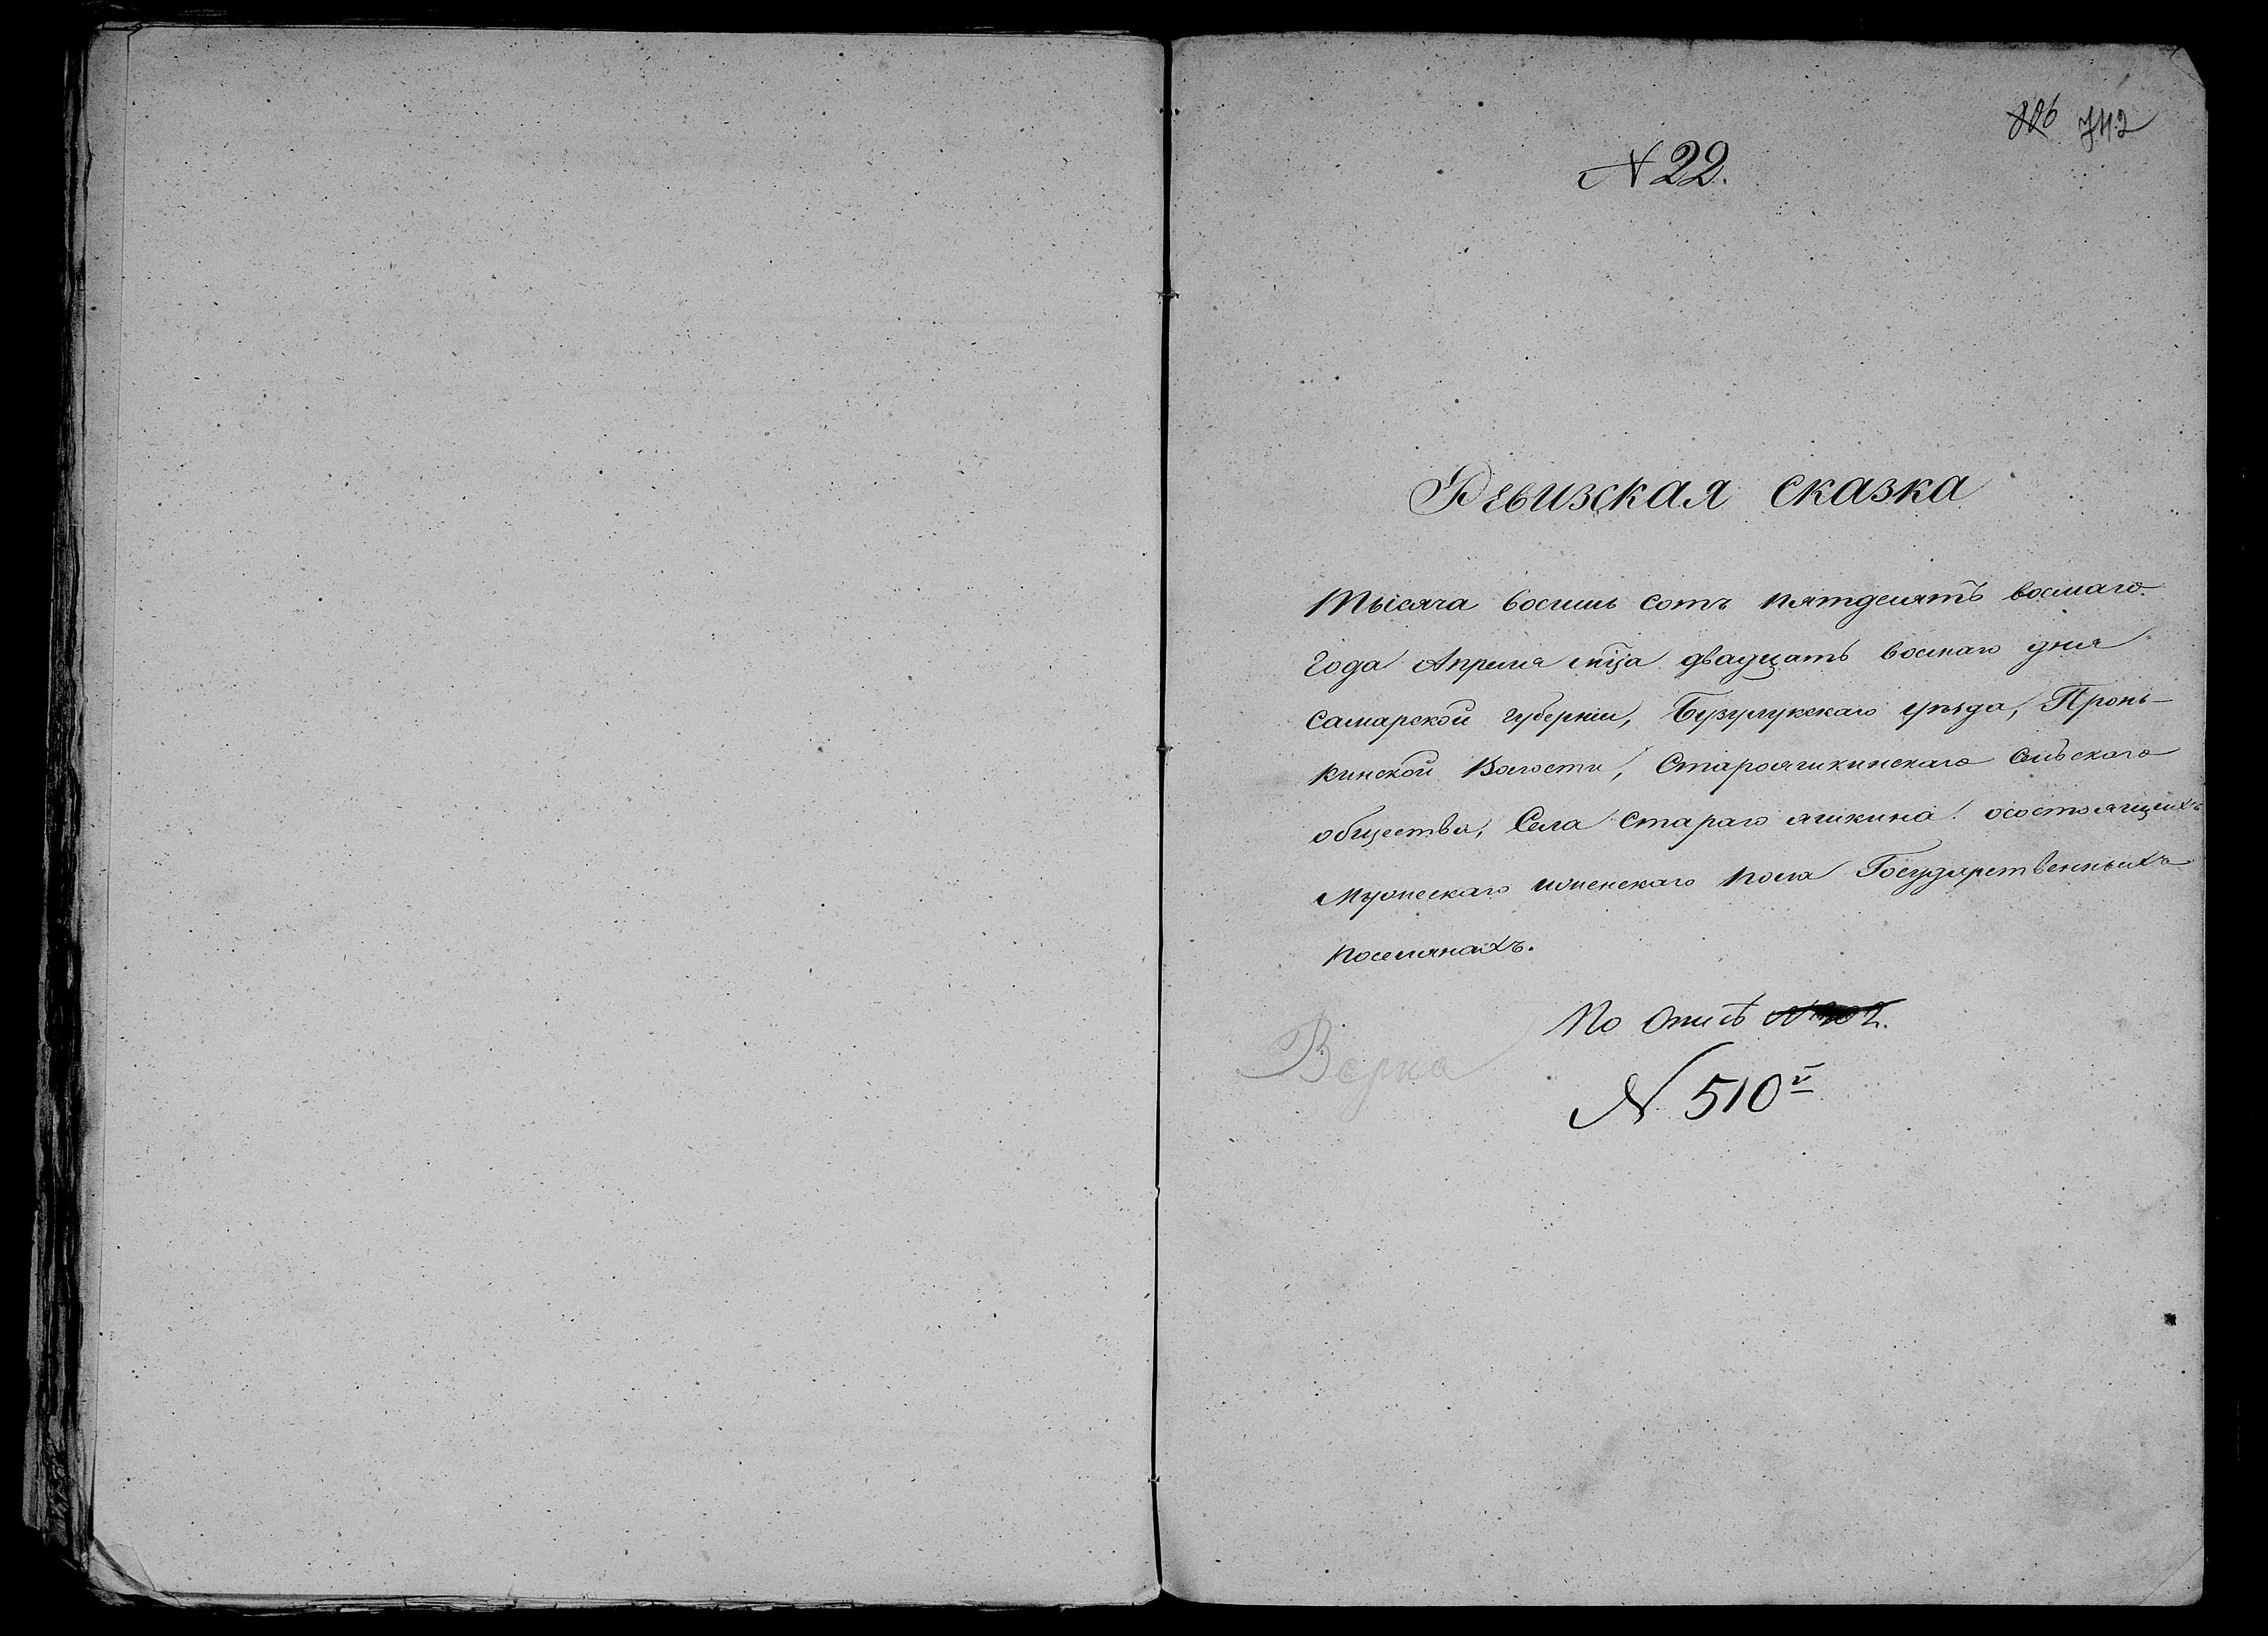 742
N 22.
Ревизская сказка
Тысяча восимь сотъ пятдесятъ восмаго
года Апреля мца двадцать восмаго дня
Самарской губерніи, Бузулукскаго уѣзда, Пронь-
кинской Волости, Старояшкинскаго Сельскаго
общества, Села Стараго яшкина. осостоящихъ
Мужескаго иженскаго пола Государственныхъ
поселянахъ.
По Описѣ
N 510й